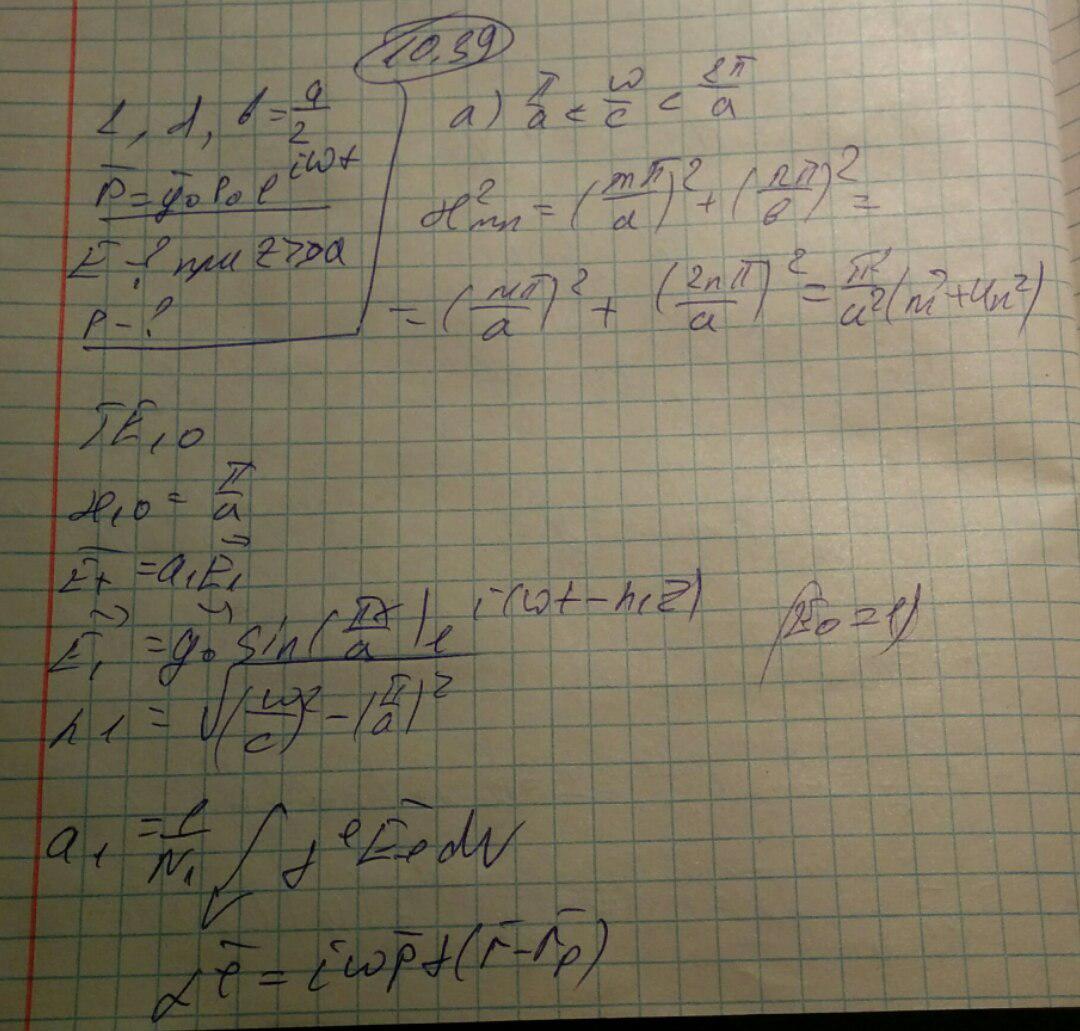 10.39
L, d, b = a/2
p̄ = ȳ₀ p₀ e^{iωt}
Ē - ? при z >> a
P - ?
а) π/a < ω/c < 2π/a
ϰ²ₘₙ = (mπ/a)² + (nπ/b)² =
= (mπ/a)² + (2nπ/a)² = π²/a² (m² + 4n²)
TE₁₀
ϰ₁₀ = π/a
Ē₊ = a₁E⃗₁
E⃗₁ = y⃗₀ sin(πx/a) e^{i(ωt - h₁z)} (E₀ = 1)
h₁ = √((ω/c)² - (π/a)²)
a₁ = 1/N₁ ∫ j^e Ē dV
j̄^e = iωp̄ δ(r̄ - r̄ₚ)